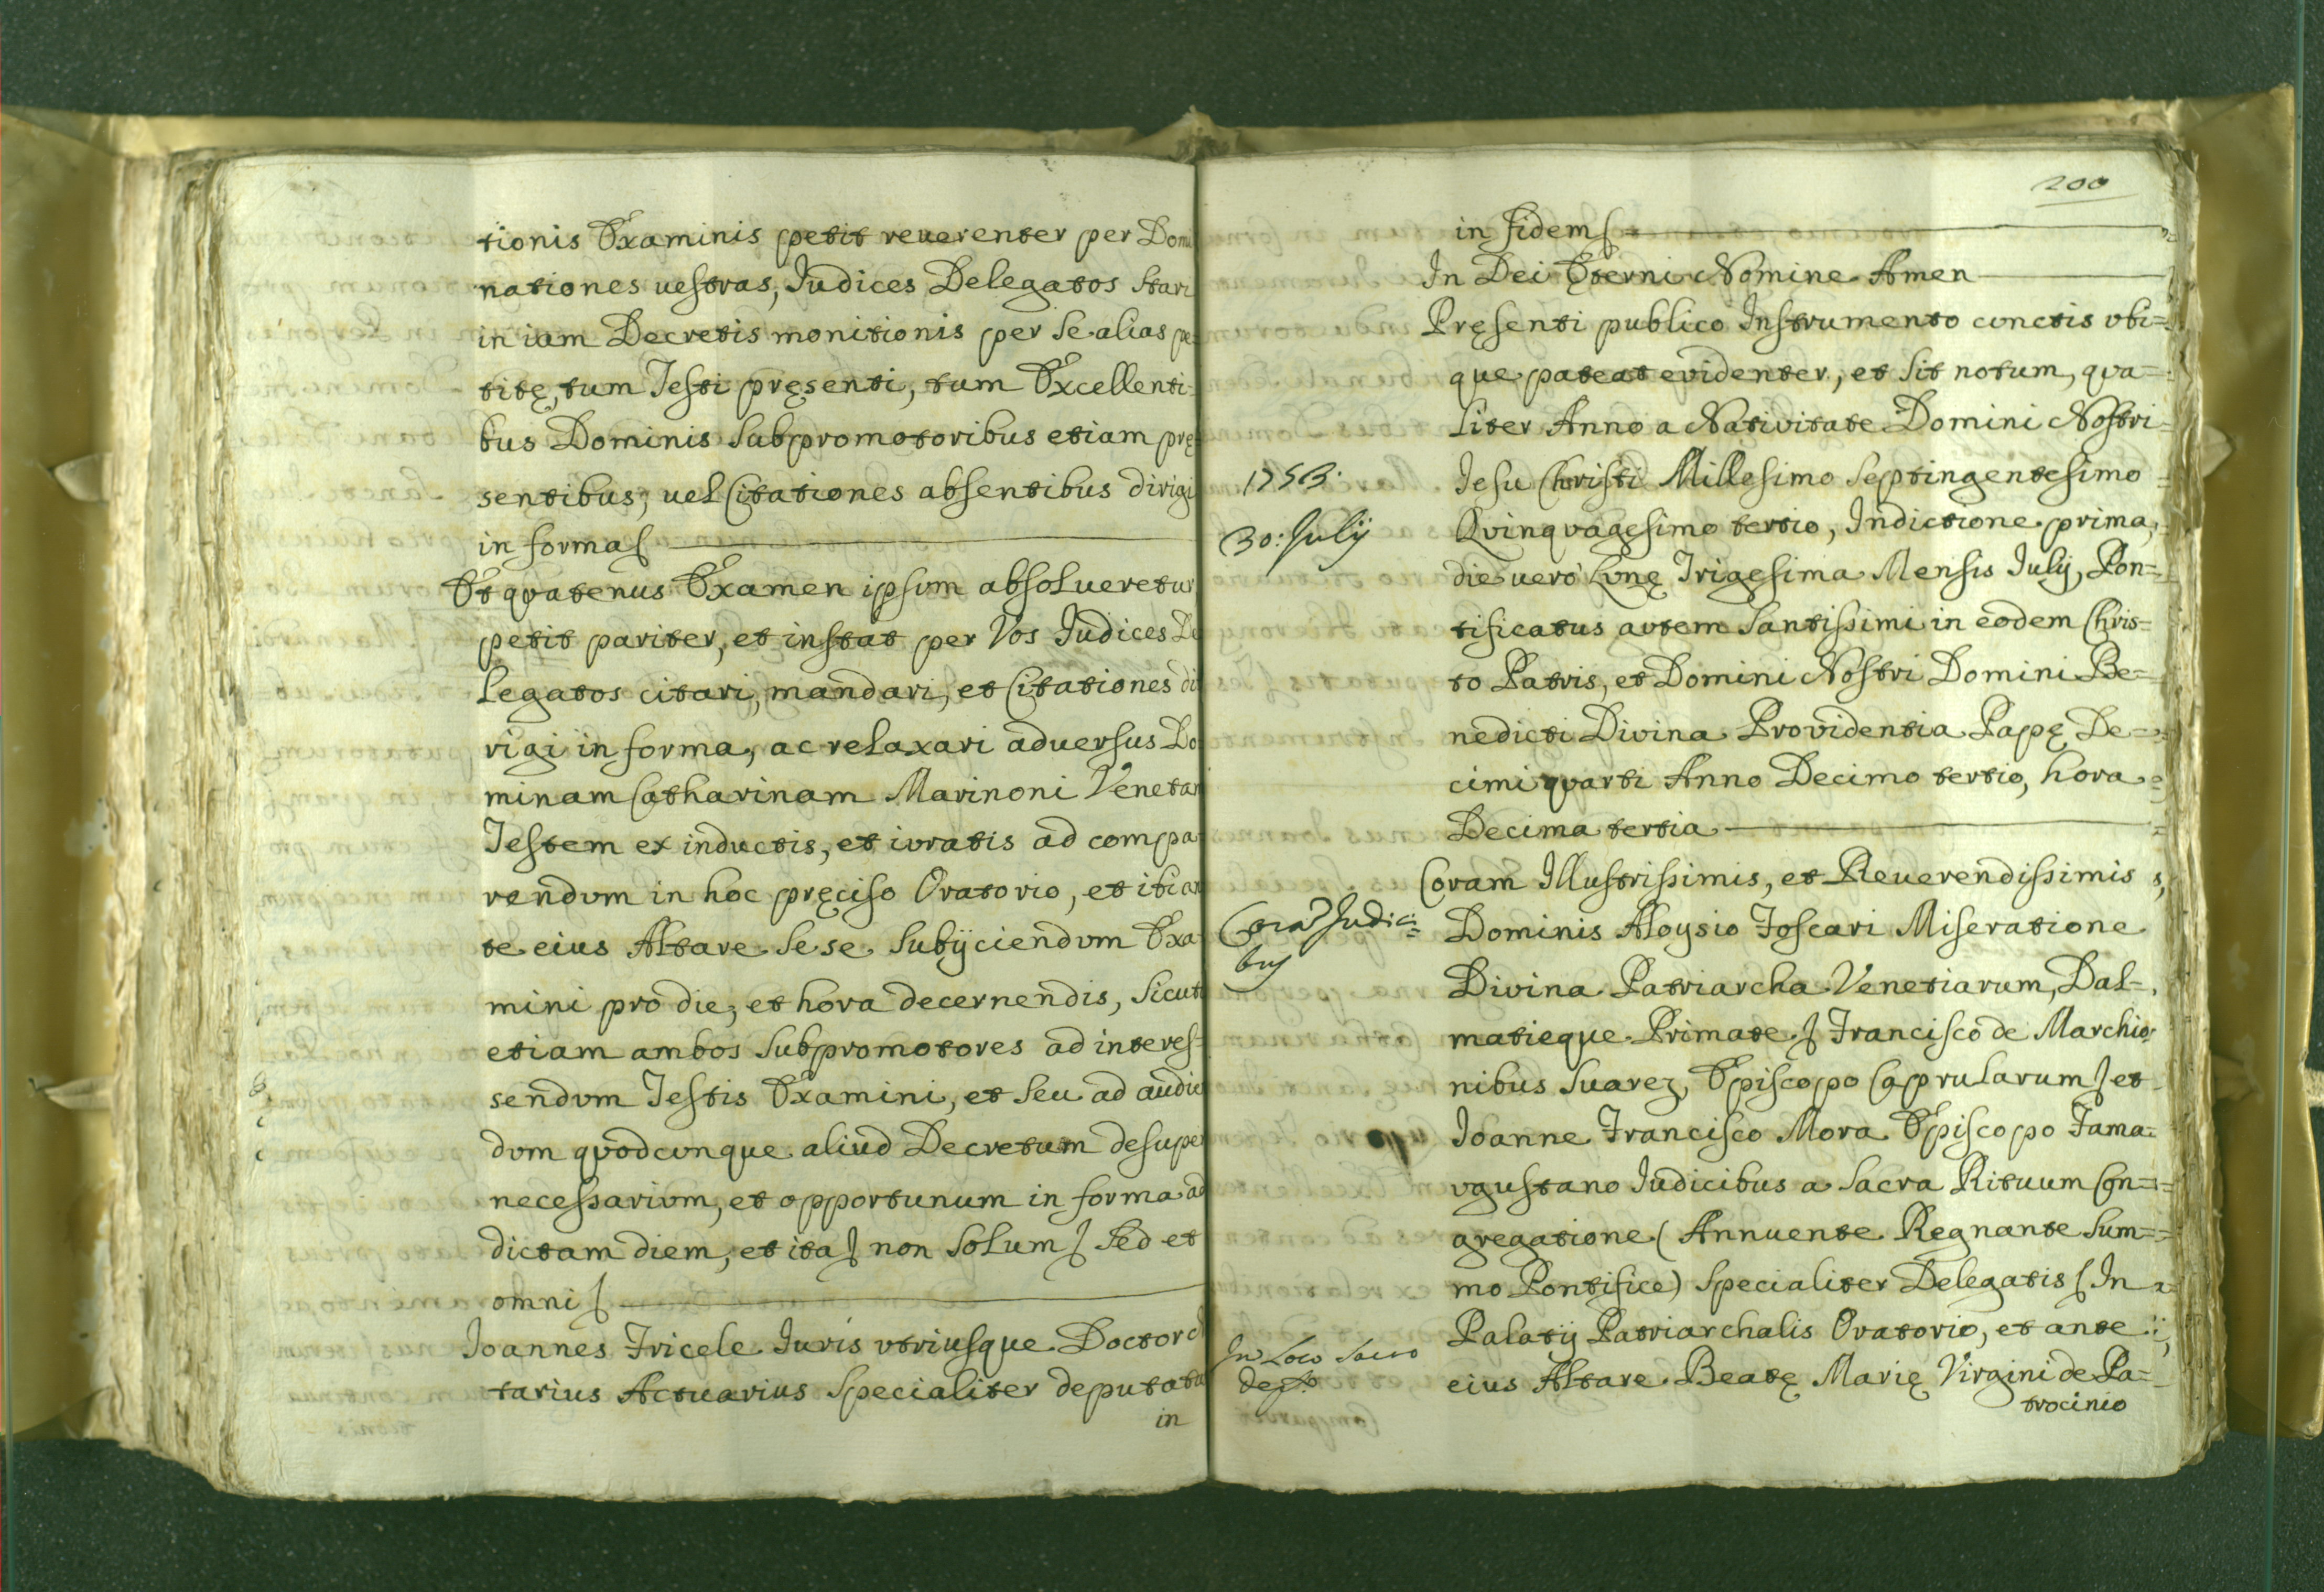 tionis Examinis petit reuerenter per Domi
nationes uestras, Iudices Delegatos stari
in iam Decretis monitionis per se alias pe
titę, tum Testi pręsenti, tum Excellenti-
bus Dominis Subpromotoribus etiam prę
sentibus, uel Citationes absentibus dirigi
in forma
Et qvatenus Examen ipsvm absolueretur
petit pariter, et instat per Vos Iudices De
legatos citari, mandari, et Citationes di
rigi in forma, ac relaxari aduersus Do
minam Catharinam Marinoni Venetam
Testem ex inductis, et ivratis ad compa
rendvm in hoc pręciso Oratorio, et ibi an
te eius Altare sese subijciendvm Exa
mini pro die, et hora decernendis, sicut
etiam ambos Subpromotores ad interes-
sendvm Testis Examini, et seu ad audien
dvm qvodcvnque aliud Decretum desuper
necessarivm, et opportunum in forma ad
dictam diem, et ita non solum sed et
omni
Ioannes Fricele Iuris vtriusque Doctor
tarius Actuarius Specialiter deputatus
in
200
in fidem
In Dei Ęterni Nomine Amen
Pręsenti publico Instrumento cvnctis vbi=
que pateat evidenter, et sit notum, qva=
liter Anno a Nativitate Domini Nostri
1753.
Iesu Christi Millesimo Septingentesimo
30: July
Qvinqvagesimo tertio, Indictione prima,
die uerò Lvnę Trigesima Mensis Iulij, Pon=
tificatus avtem Santissimi in eodem Chris=
to Patris, et Domini Nostri Domini Be=
nedicti Divina Providentia Papę De=
cimi qvarti Anno Decimo tertio, hora
Decima tertia
Coram Illustrissimis, et Reuerendissimis
Corā Judici=
bus
Dominis Aloysio Foscari Miseratione
Divina Patriarcha Venetiarum, Dal-
matieque Primate Francisco de Marchio
nibus Suarez, Episcopo Caprularum et
Ioanne Francisco Mora Episcopo Fama=
vgustano Iudicibus a Sacra Rituum Con=
gregatione (Annuente Regnante Sum=
mo Pontifice) Specialiter Delegatis In
In Loco Sacro
Palatij Patriarchalis Oratorio, et ante
eius Altare Beatę Marię Virgini de Pa=
trocinio